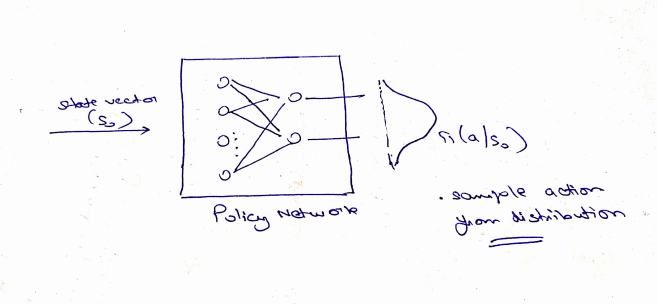 state vector
(S₀)
π(a/s₀)
Policy Network
. sample action
from distribution